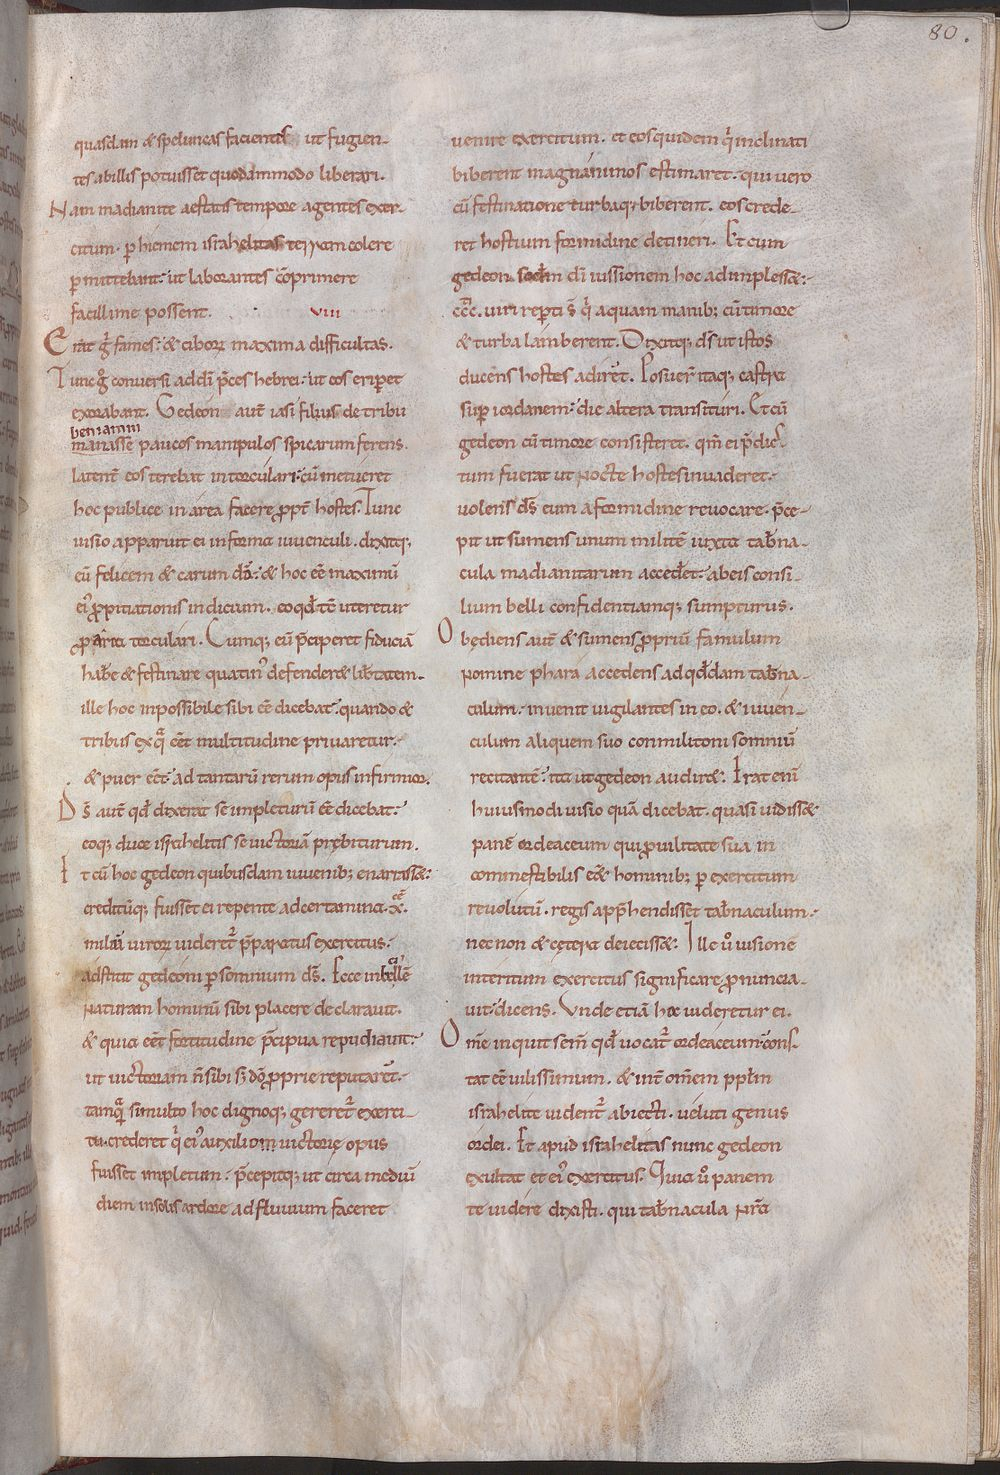 80.
quasdam & speluncas facientes ut fugien-
tes ab illis potuisset quodammodo liberari.
Nam madianite aestatis tempore agentes exer-
citum. p hiemem israhelitas terram colere
pmittebant: ut laborantes cōprimere
facillime possent. VIII
Erat g̃ fames: & ciborꝝ maxima difficultas.
Tunc g̊ conversi ad dm̄ p̄ces hebrei: ut eos eriperet
exorabant. Gedeon aut̄ iasi filius de tribu
beniamin
manasse paucos manipulos spicarum ferens.
latent̄ eos terebat in torculari: cū metueret
hoc publice in area facere ꝓpt̄ hostes. Tunc
visio apparuit ei in forma iuvenculi. dixitq;
cū felicem & carum dō: & hoc eē maximū
ei' ꝓpitiationis indicium. eo qd̄ tē uteretur
ꝓ area torculari. Cumq; eū p̄ciperet fiduciā
hab̄e & festinare quatin' defenderet lib̄tatem-
ille hoc inpossibile sibi eē dicebat: quando &
tribus ex q̄ eēt multitudine privaretur:
& puer eēt: ad tantarū rerum opus infirmior.
Ds̄ aut̄ qd̄ dixerat se impleturū eē dicebat:
eoq; duce israhelitis se victoriā prębiturum.
It cū hoc gedeon quibusdam iuvenib; enarrasset:
creditūq; fuisset ei repente ad certamina. x̄.
miliā virorꝝ videret̄ p̄paratus exercitus:
adstitit gedeoni p somnium ds̄. Ecce
naturam hominū sibi placere declaravit.
& quia eēt fortitudine p̄cipua repudiavit:
ut victoriam n̄ sibi s; dō ꝓprie reputaret.
tamq̄ si multo hoc dignoq; gereret̄ exerci-
tu. crederet q̄ ei' auxiliom victorię opus
fuisset impletum: p̄cepitq; ut circa mediū
diem in solis ardore ad fluvium faceret
venire exercitum. et eos quidem q̄ inclinati
biberent magnanimos estimaret. qui vero
cū festinatione turbaq; biberent. eos crede-
ret hostium formidine detineri. Et cum
gedeon scd̄m di iussionem hoc adimplesset:
ccc. viri reperti s̄ q̄ aquam manib; cū timore
& turba lamberent. Dixitq; ds̄ ut istos
ducens hostes adiret. Posuer̄ itaq; castra
sup iordanem: die altera transituri. Et cū
gedeon cū timore consisteret. qm̄ ei p̄dic-
tum fuerat ut nocte hostes invaderet:
volens ds̄ eum a formidine revocare. p̄ce-
pit ut sumens unum militē iuxta tab̄na-
cula madianitarum accederet: ab eis consi-
lium belli confidentiamq; sumpturus.
Obędiens aut̄ & sumens ꝓpriū famulum
nomine phara accedens ad qd̄dam tab̄na-
culum: invenit vigilantes in eo. & iuven-
culum aliquem suo conmilitoni somniū
recitantē: ita ut gedeon audiret. Erat enī
huiusmodi visio quā dicebat. quasi vidisset
panē ordeaceum qui ꝓ vilitate sua in
commestibilis eēt hominib; p exercitum
revolutū. regis app̄hendisset tab̄naculum:
nec non & cętera deiecisset: Ille ů visionē
interitum exercitus significare ꝓnuncia-
vit: dicens. Unde etiā hoc videretur ei.
Om̄e inquit sem̄ qd̄ vocat̄ ordeaceum cons-
tat eē vilissimum. & int̄ om̄em pp̄lm
israhelite vident̄ abiecti. veluti genus
ordei. Et apud israhelitas nunc gedeon
exultat et ei' exercitus. Quia ů panem
te videre dixisti. qui tab̄nacula nr̄a